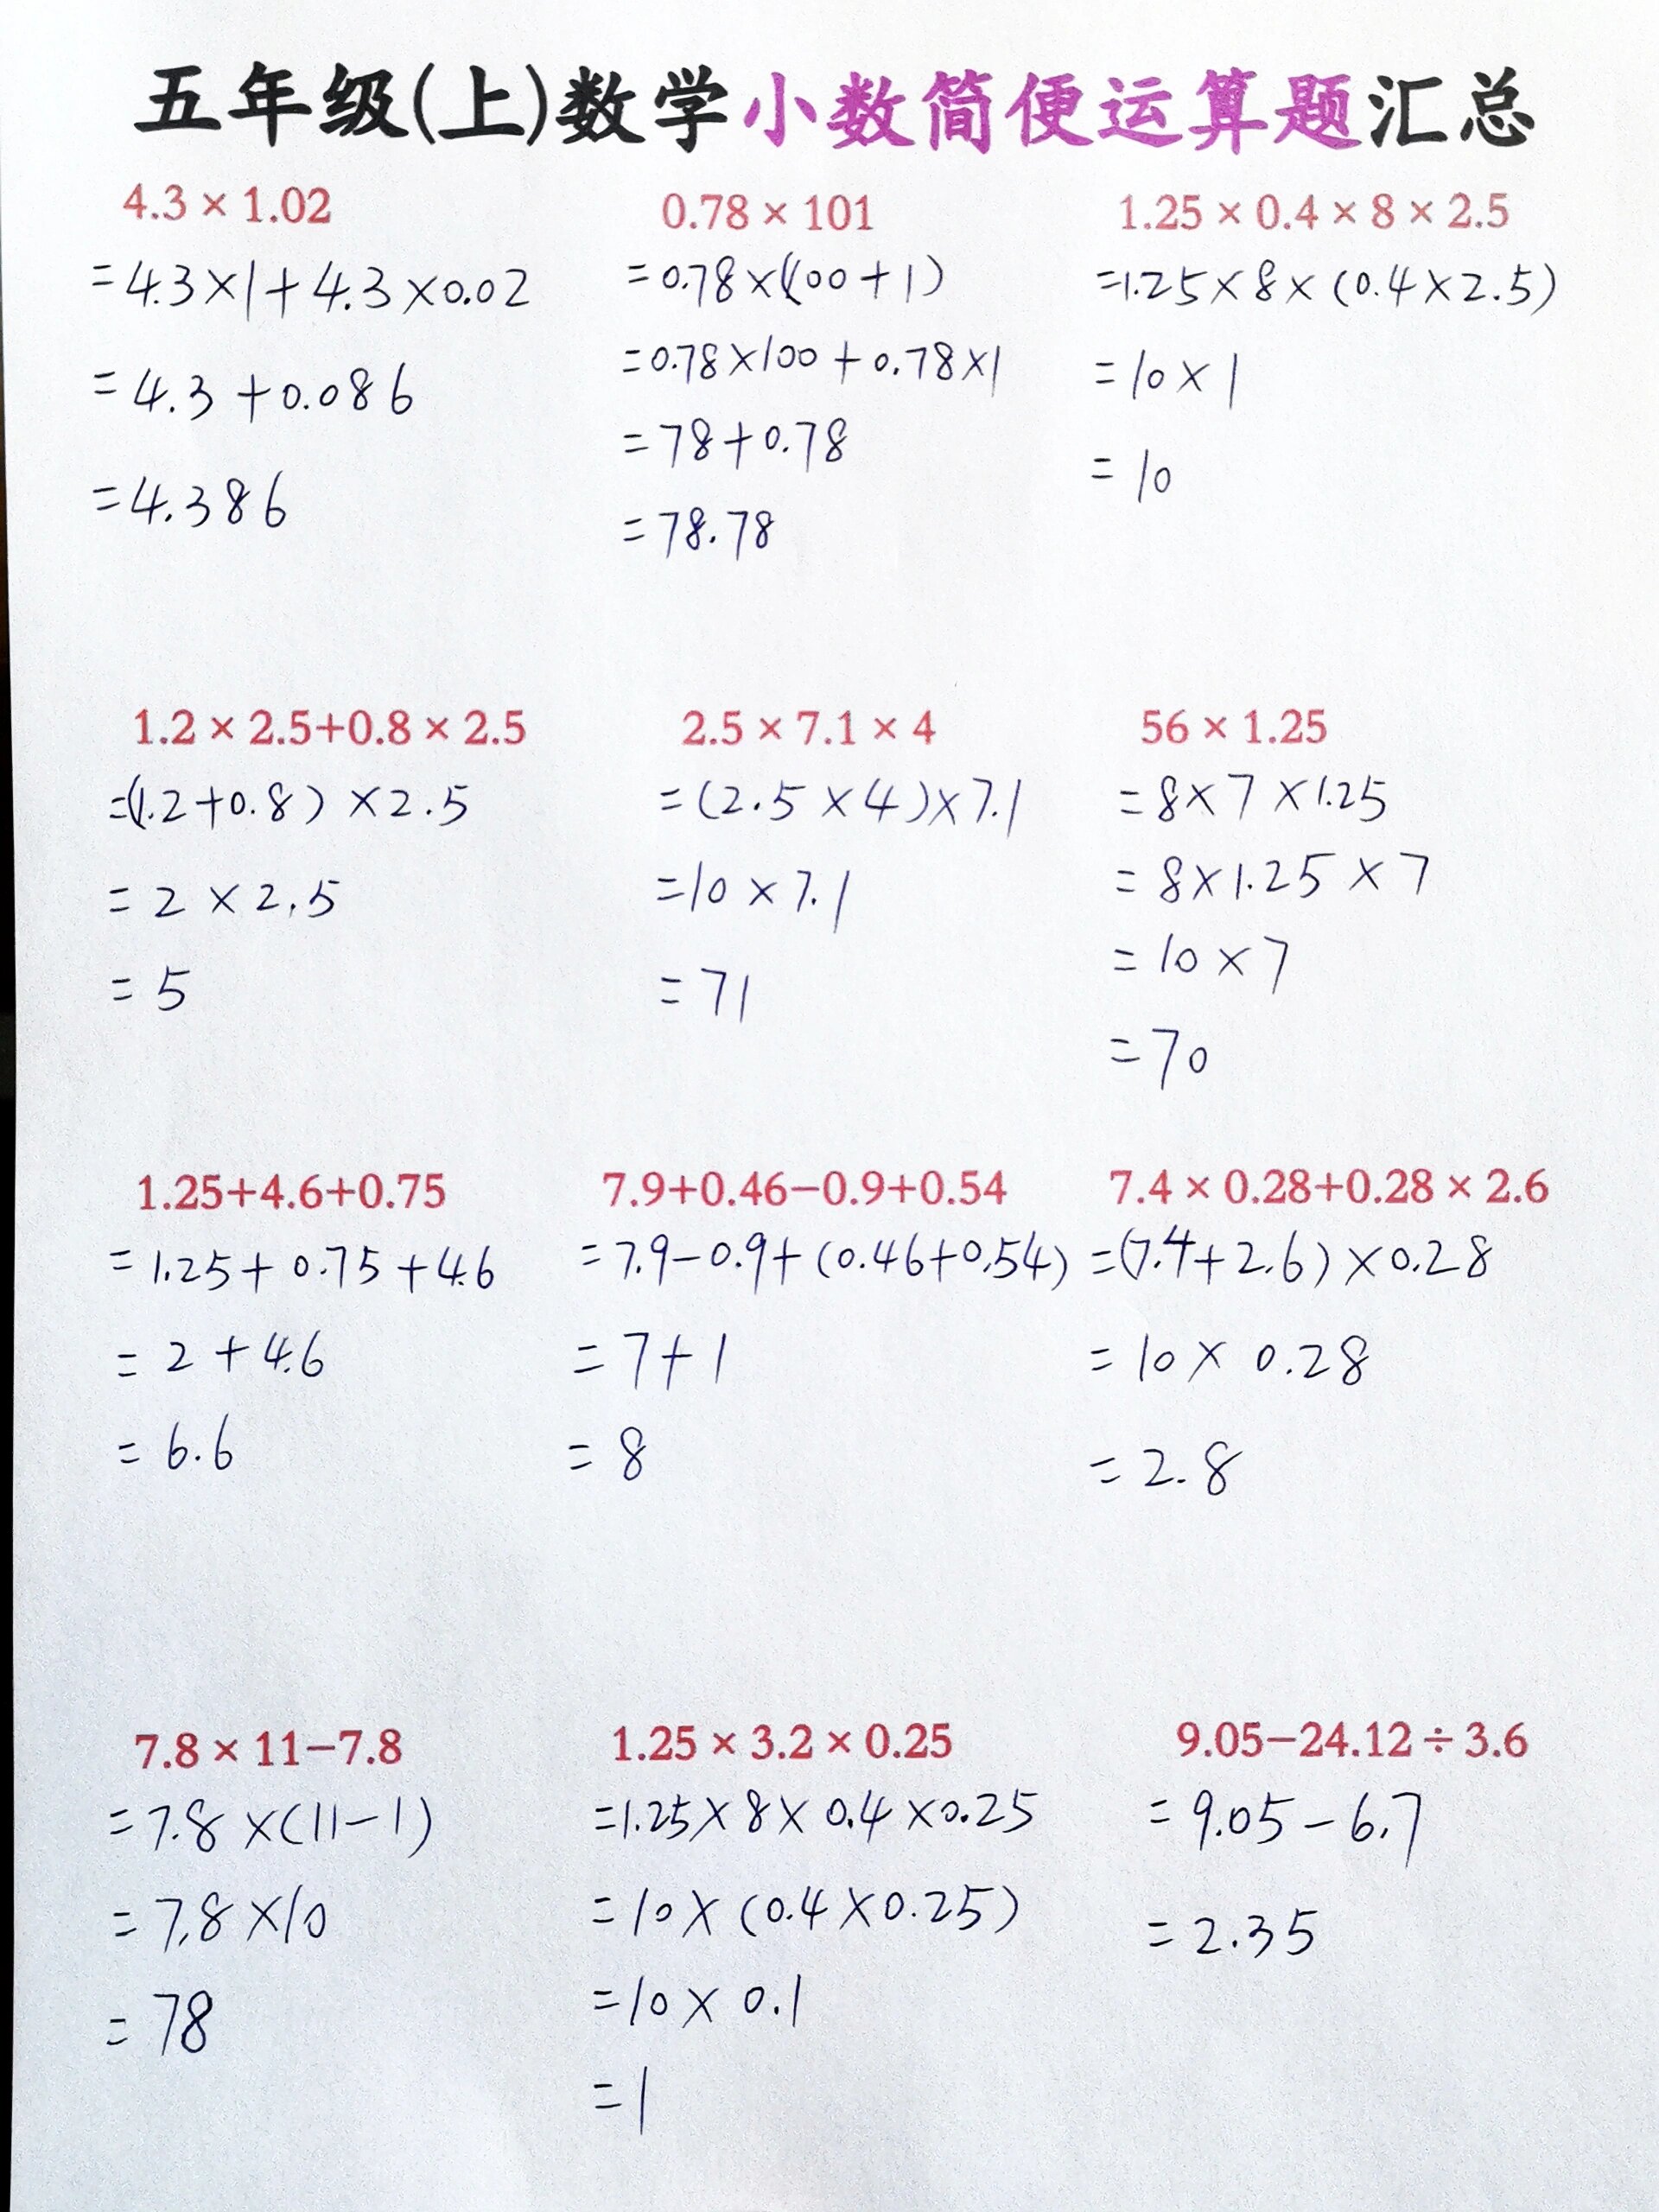 五年级(上)数学小数简便运算题汇总
4.3×1.02
=4.3×1+4.3×0.02
=4.3+0.086
=4.386
0.78×101
=0.78×(100+1)
=0.78×100+0.78×1
=78+0.78
=78.78
1.25×0.4×8×2.5
=1.25×8×(0.4×2.5)
=10×1
=10
1.2×2.5+0.8×2.5
=(1.2+0.8)×2.5
=2×2.5
=5
2.5×7.1×4
=(2.5×4)×7.1
=10×7.1
=71
56×1.25
=8×7×1.25
=8×1.25×7
=10×7
=70
1.25+4.6+0.75
=1.25+0.75+4.6
=2+4.6
=6.6
7.9+0.46−0.9+0.54
=7.9−0.9+(0.46+0.54)
=7+1
=8
7.4×0.28+0.28×2.6
=(7.4+2.6)×0.28
=10×0.28
=2.8
7.8×11−7.8
=7.8×(11−1)
=7.8×10
=78
1.25×3.2×0.25
=1.25×8×0.4×0.25
=10×(0.4×0.25)
=10×0.1
=1
9.05−24.12÷3.6
=9.05−6.7
=2.35